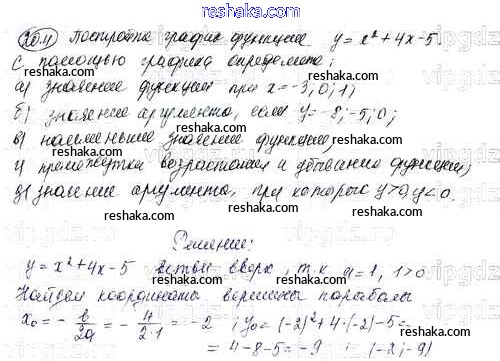 reshaka.com
20.11 Постройте график функции y = x² + 4x - 5.
С помощью графика определите:
а) значение функции при x = -3; 0; 1;
б) значение аргумента, если y = -8; -5; 0;
в) наименьшее значение функции;
г) промежутки возрастания и убывания функции;
д) значение аргумента, при которых y > 0, y < 0.
Решение:
y = x² + 4x - 5 ветви вверх, т.к a = 1, 1 > 0
Найдем координаты вершины параболы
x₀ = - b/2a = - 4/2·1 = -2 ; y₀ = (-2)² + 4·(-2) - 5 =
= 4 - 8 - 5 = -9 ; (-2; -9)
reshaka.com